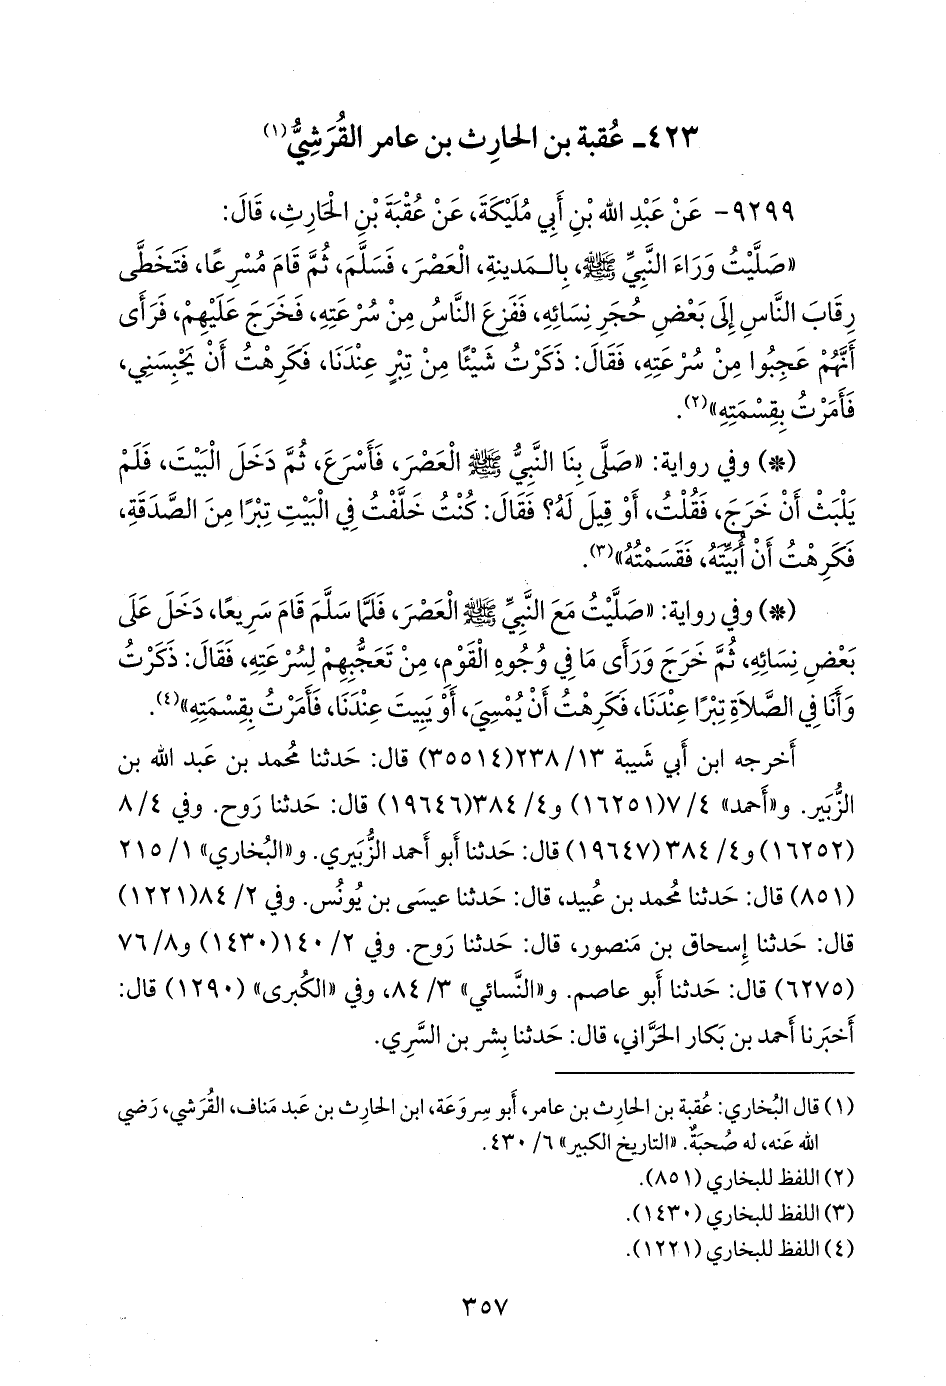 ٤٢٣ـ عُقبة بن الحارِث بن عامر القُرَشِيُّ(١)
٩٢٩٩- عَنْ عَبْدِ الله بْنِ أَبِي مُلَيْكَةَ، عَنْ عُقْبَةَ بْنِ الْحَارِثِ، قَالَ:
«صَلَّيْتُ وَرَاءَ النَّبِيِّ ﷺ، بِالـمَدينةِ، الْعَصْرَ، فَسَلَّمَ، ثُمَّ قَامَ مُسْرِعًا، فَتَخَطَّى
رِقَابَ النَّاسِ إِلَى بَعْضِ حُجَرِ نِسَائِهِ، فَفَزِعَ النَّاسُ مِنْ سُرْعَتِهِ، فَخَرَجَ عَلَيْهِمْ، فَرَأَى
أَنَّهُمْ عَجِبُوا مِنْ سُرْعَتِهِ، فَقَالَ: ذَكَرْتُ شَيْئًا مِنْ تِبْرٍ عِنْدَنَا، فَكَرِهْتُ أَنْ يَحْبِسَنِي،
فَأَمَرْتُ بِقِسْمَتِهِ»(٢).
(*) وفي رواية: «صَلَّى بِنَا النَّبِيُّ ﷺ الْعَصْرَ، فَأَسْرَعَ، ثُمَّ دَخَلَ الْبَيْتَ، فَلَمْ
يَلْبَثْ أَنْ خَرَجَ، فَقُلْتُ، أَوْ قِيلَ لَهُ؟ فَقَالَ: كُنْتُ خَلَّفْتُ فِي الْبَيْتِ تِبْرًا مِنَ الصَّدَقَةِ،
فَكَرِهْتُ أَنْ أُبَيِّتَهُ، فَقَسَمْتُهُ»(٣).
(*) وفي رواية: «صَلَّيْتُ مَعَ النَّبِيِّ ﷺ الْعَصْرَ، فَلَمَّا سَلَّمَ قَامَ سَرِيعًا، دَخَلَ عَلَى
بَعْضِ نِسَائِهِ، ثُمَّ خَرَجَ وَرَأَى مَا فِي وُجُوهِ الْقَوْمِ، مِنْ تَعَجُّبِهِمْ لِسُرْعَتِهِ، فَقَالَ: ذَكَرْتُ
وَأَنَا فِي الصَّلَاةِ تِبْرًا عِنْدَنَا، فَكَرِهْتُ أَنْ يُمْسِيَ، أَوْ يَبِيتَ عِنْدَنَا، فَأَمَرْتُ بِقِسْمَتِهِ»(٤).
أخرجه ابن أبي شَيبة ١٣/ ٢٣٨(٣٥٥١٤) قال: حَدثنا مُحمد بن عَبد الله بن
الزُّبَير. و«أَحمد» ٤/ ٧(١٦٢٥١) و٤/ ٣٨٤(١٩٦٤٦) قال: حَدثنا رَوح. وفي ٤/ ٨
(١٦٢٥٢) و٤/ ٣٨٤(١٩٦٤٧) قال: حَدثنا أَبو أَحمد الزُّبَيري. و«البُخاري» ١/ ٢١٥
(٨٥١) قال: حَدثنا مُحمد بن عُبيد، قال: حَدثنا عيسَى بن يُونُس. وفي ٢/ ٨٤(١٢٢١)
قال: حَدثنا إِسحاق بن مَنصور، قال: حَدثنا رَوح. وفي ٢/ ١٤٠(١٤٣٠) و٨/ ٧٦
(٦٢٧٥) قال: حَدثنا أَبو عاصم. و«النَّسائي» ٣/ ٨٤، وفي «الكُبرى» (١٢٩٠) قال:
أَخبَرنا أَحمد بن بَكار الحَرَّاني، قال: حَدثنا بِشر بن السَّرِي.
(١) قال البُخاري: عُقبة بن الحارِث بن عامر، أَبو سِروَعَة، ابن الحارِث بن عَبد مَناف، القُرَشي، رَضي
الله عَنه، له صُحبَةٌ. «التاريخ الكبير» ٦/ ٤٣٠.
(٢) اللفظ للبخاري (٨٥١).
(٣) اللفظ للبخاري (١٤٣٠).
(٤) اللفظ للبخاري (١٢٢١).
٣٥٧